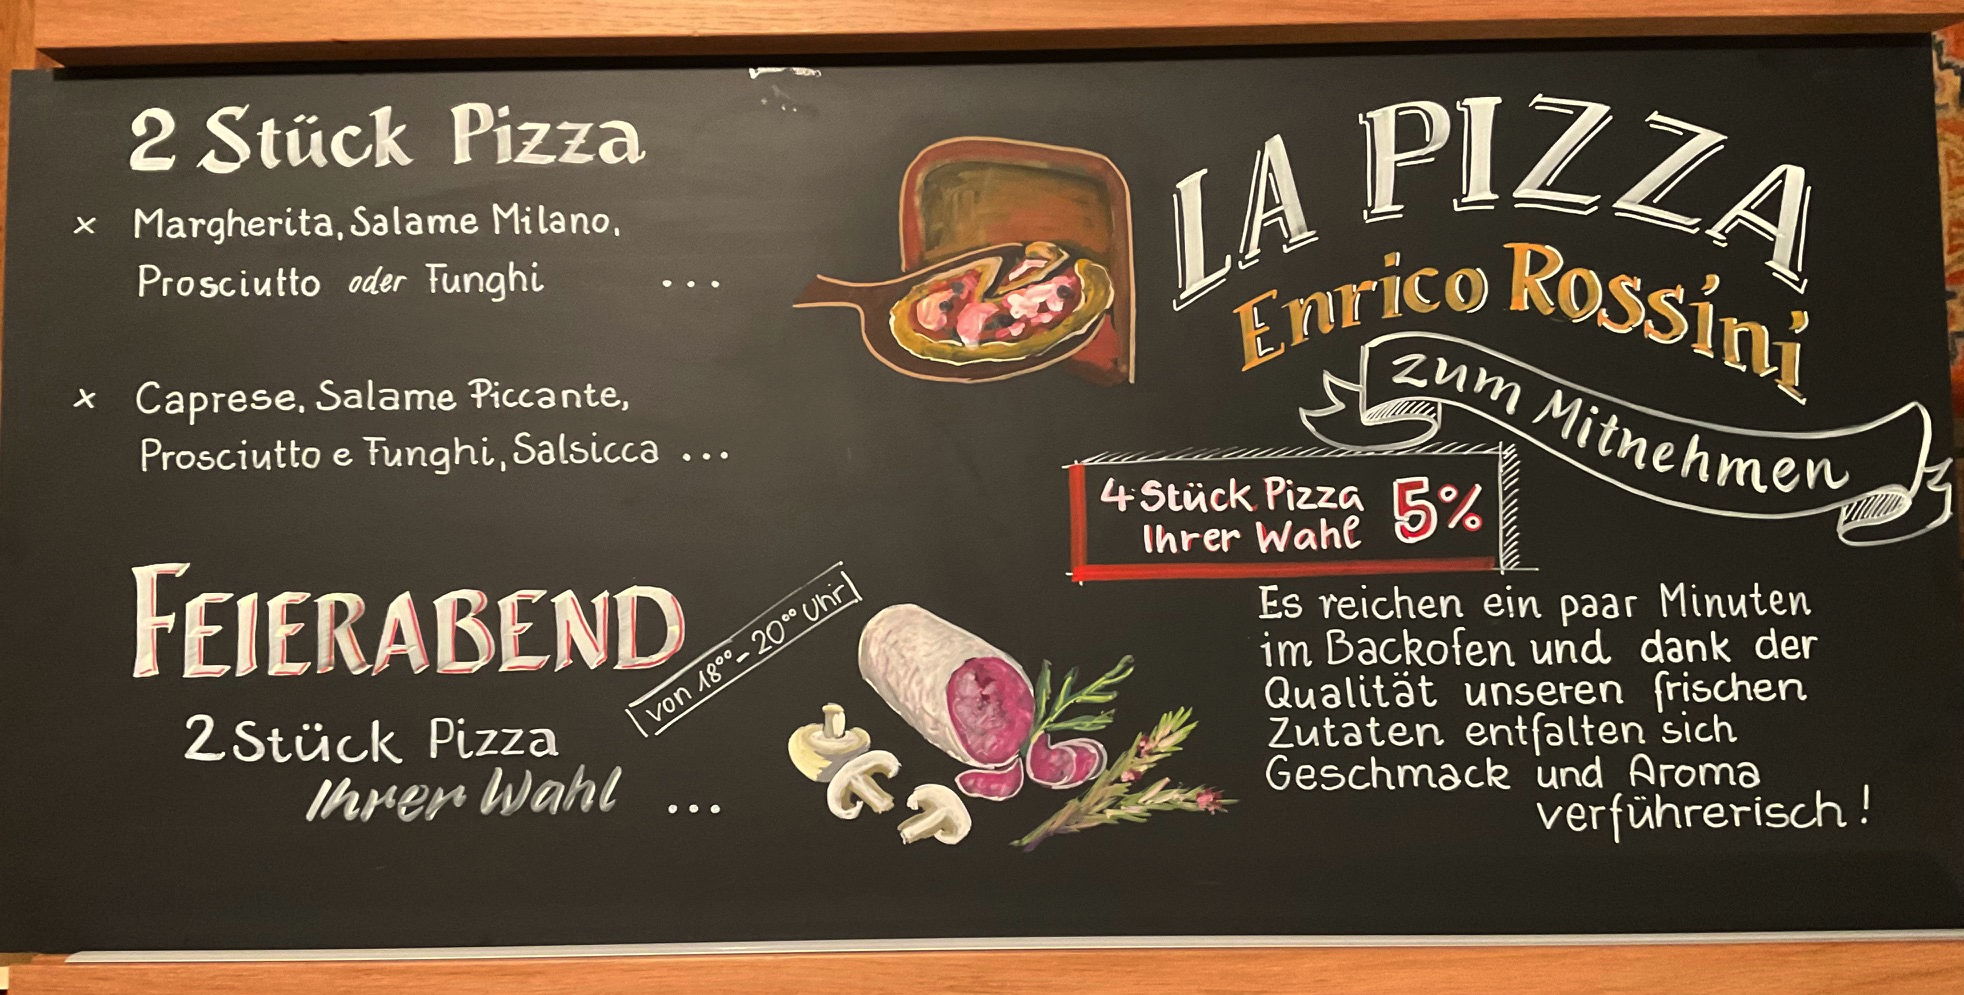 2 Stück Pizza
x Margherita, Salame Milano,
Prosciutto oder Funghi ...
x Caprese, Salame Piccante,
Prosciutto e Funghi, Salsicca ...
FEIERABEND
von 18⁰⁰ - 20⁰⁰ Uhr
2 Stück Pizza
Ihrer Wahl ...
LA PIZZA
Enrico Rossini
zum Mitnehmen
4 Stück Pizza 5%
Ihrer Wahl
Es reichen ein paar Minuten
im Backofen und dank der
Qualität unseren frischen
Zutaten entfalten sich
Geschmack und Aroma
verführerisch!